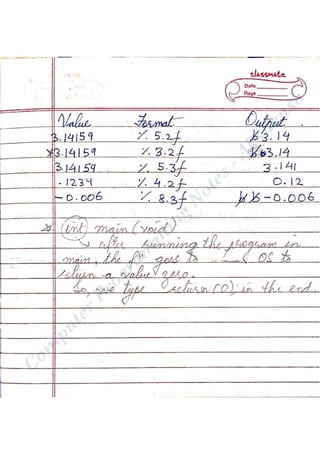 classmate
Date
Page
Value Format Output
3.14159 %5.2f ␢3.14
×3.14159 %3.2f 3.14
3.14159 %5.3f 3.141
.1234 %4.2f 0.12
-0.006 %8.3f ␢␢-0.006
int main (void)
↳ after running the program in
main, the fn goes to OS to
return a value zero.
So, we type return (0); in the end.
Computer Programming Notes -